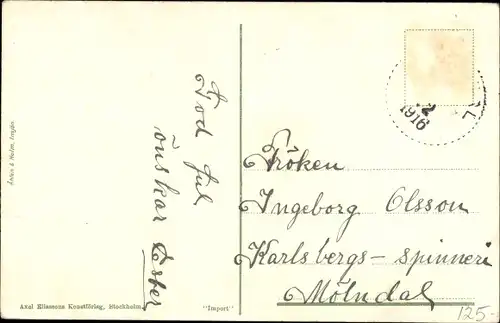 God jul
önskar Ester
Fröken
Ingeborg Olsson
Karlsbergs-spinneri
Mölndal
1916
Axel Eliassons Konstförlag, Stockholm.
"Import"
125-